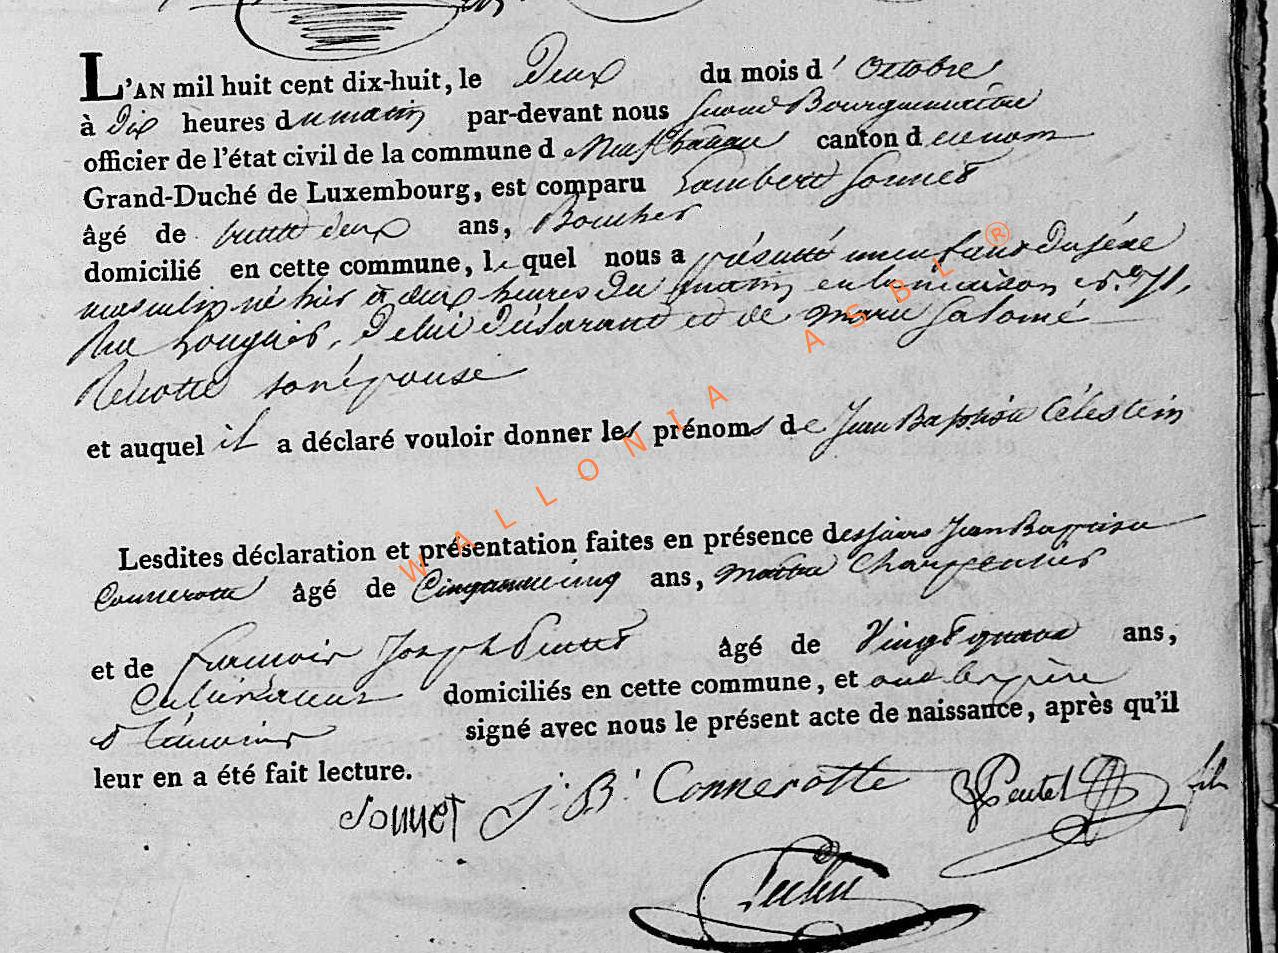 L'AN mil huit cent dix-huit, le Deux du mois d'Octobre
à Dix heures du matin par-devant nous Second Bourguemaitre
officier de l'état civil de la commune de Neufchâteau canton de ce nom
Grand-Duché de Luxembourg, est comparu Lambert Sonnet
âgé de trente deux ans, Boucher
domicilié en cette commune, lequel nous a présenté un enfant Du sexe
masculin né hier à deux heures Du matin en la maison n.° 71,
Rue De lui Déclarant et de marie Salomé
son épouse
et auquel il a déclaré vouloir donner les prénoms de Jean Baptiste Célestin
Lesdites déclaration et présentation faites en présence des sieurs Jean Baptiste
Connerotte âgé de Cinquante cinq ans, maitre Charpentier
et de francois Joseph âgé de Vingt quatre ans,
Cultivateur domiciliés en cette commune, et ont les père
& témoins signé avec nous le présent acte de naissance, après qu'il
leur en a été fait lecture.
Sonnet J. B. Connerotte fils
WALLONIA ASBL ®